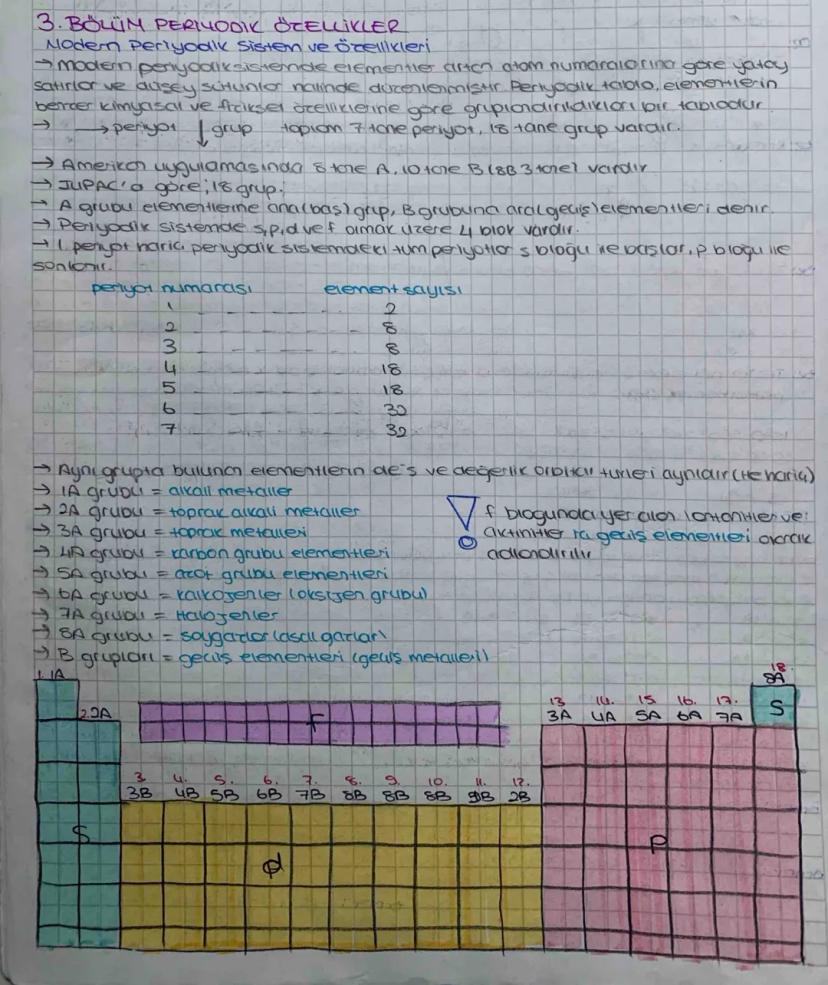 3. BÖLÜM PERİYODİK ÖZELLİKLER
Modern Periyodik Sistem ve özellikleri
→ modern periyodik sistemde elementler artan atom numaralarına göre yatay
satırlar ve düşey sütunlar halinde düzenlenmiştir. Periyodik tablo, elementlerin
benzer kimyasal ve fiziksel özelliklerine göre gruplandırıldıkları bir tablodur.
→ → periyot ↓ grup toplam 7 tane periyot, 18 tane grup vardır.
→ Amerikan uygulamasında 8 tane A, 10 tane B (8B 3 tane) vardır
→ IUPAC'a göre; 18 grup;
→ A grubu elementlerine ana (baş) grup, B grubuna ara (geçiş) elementleri denir.
→ Periyodik sistemde s, p, d ve f olmak üzere 4 blok vardır.
→ 1. periyot hariç, periyodik sistemdeki tüm periyotlar s bloğu ile başlar, p bloğu ile
sonlanır.
periyot numarası element sayısı
1 2
2 8
3 8
4 18
5 18
6 32
7 32
→ Aynı grupta bulunan elementlerin de's ve değerlik orbital türleri aynıdır (He hariç)
→ 1A grubu = alkali metaller
→ 2A grubu = toprak alkali metaller
→ 3A grubu = toprak metalleri
→ 4A grubu = karbon grubu elementleri
→ 5A grubu = azot grubu elementleri
→ 6A grubu = kalkojenler (oksijen grubu)
→ 7A grubu = Halojenler
→ 8A grubu = soygazlar (asal gazlar)
→ B grupları = geçiş elementleri (geçiş metalleri)
f bloğunda yer alan lantanitler ve
aktinitler iç geçiş elementleri olarak
adlandırılır
1. 1A
18.
8A
2. 2A
13 14. 15 16. 17.
3A 4A 5A 6A 7A
S
F
3. 4. 5. 6. 7. 8. 9. 10. 11. 12.
3B 4B 5B 6B 7B 8B 8B 8B 1B 2B
S
d
P